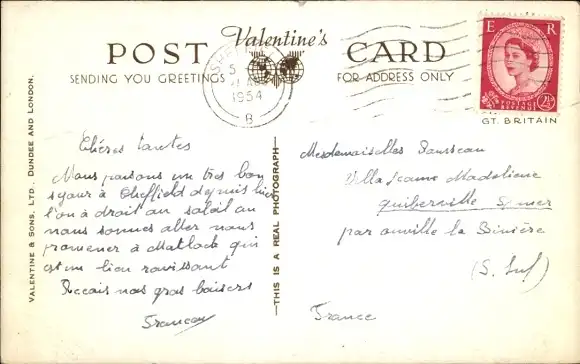 POST Valentine's CARD
SENDING YOU GREETINGS FOR ADDRESS ONLY
SHEFFIELD
5
1954
B
E R
POSTAGE REVENUE
2½D
GT. BRITAIN
VALENTINE & SONS, LTD., DUNDEE AND LONDON.
THIS IS A REAL PHOTOGRAPH
Chères tantes
Nous passons un très bon
séjour à Sheffield depuis hier
l'on a droit au soleil on
nous sommes allés nous
promener à Matlock qui
est un lieu ravissant
Recois nos gros baisers
Mesdemoiselles
Villa Jeanne Madeleine
Quiberville S/mer
par ouville la Rivière
(S. Inf)
France